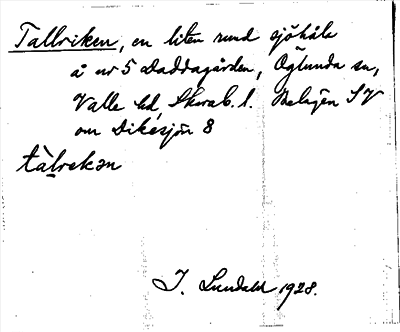 Tallriken, en liten rund sjöhåla
å nr 5 Daddagården, Öglunda sn,
Valle hd, Skarab. l. Belägen SV
om Dikesjön 8
tàlrekən
J. Lundahl 1928.